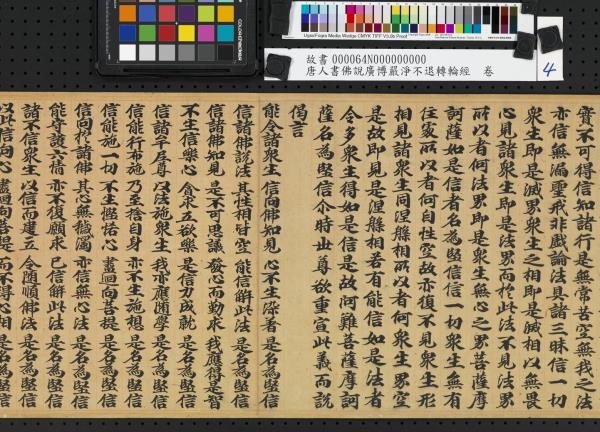 Ugra/Fogra Media Wedge CMYK TIFF V3.0b Proof
故書 000064N000000000
唐人書佛說廣博嚴淨不退轉輪經 卷
4
實不可得信知諸行是無常苦空無我之
亦信無漏聖戒非戲論法具諸三昧信一切
衆生即是滅界衆生之相即是滅相以無畏
心見諸衆生即是法界而於此法不見法界
所以者何法界即是衆生無心之界菩薩摩
訶薩如是信者名為堅信信一切衆生無有
住處所以者何自性空故亦復不見衆生形
相見諸衆生同涅槃相所以者何衆生界空
是故即見是涅槃相若有能信如是法者
令多衆生得如是信是故阿難菩薩摩訶
薩名為堅信尒時世尊欲重宣此義而說
偈言
能令諸衆生 信向佛知見 心不生染著 是名為堅信
信諸佛說法 其性相皆空 能信解此法 是名為堅信
信諸佛知見 是不可思議 發心而勤求 我應得是智
不生信樂心 貪求五欲樂 是信力成就 是名為堅信
信諸平等尊 以法施衆生 我亦應隨學 是名為堅信
信能行布施 乃至捨自身 亦不生施想 是名為堅信
信能施一切 不生慳悋心 盡迴向菩提 是名為堅信
信向於諸佛 其心無穢濁 亦信無心法 是名為堅信
能守護六情 亦不復願求 已信解此法 是名為堅信
諸不信衆生 以信而建立 令隨順佛法 是名為堅信
以此信向心 盡迴向菩提 而不得心相 是名為堅信